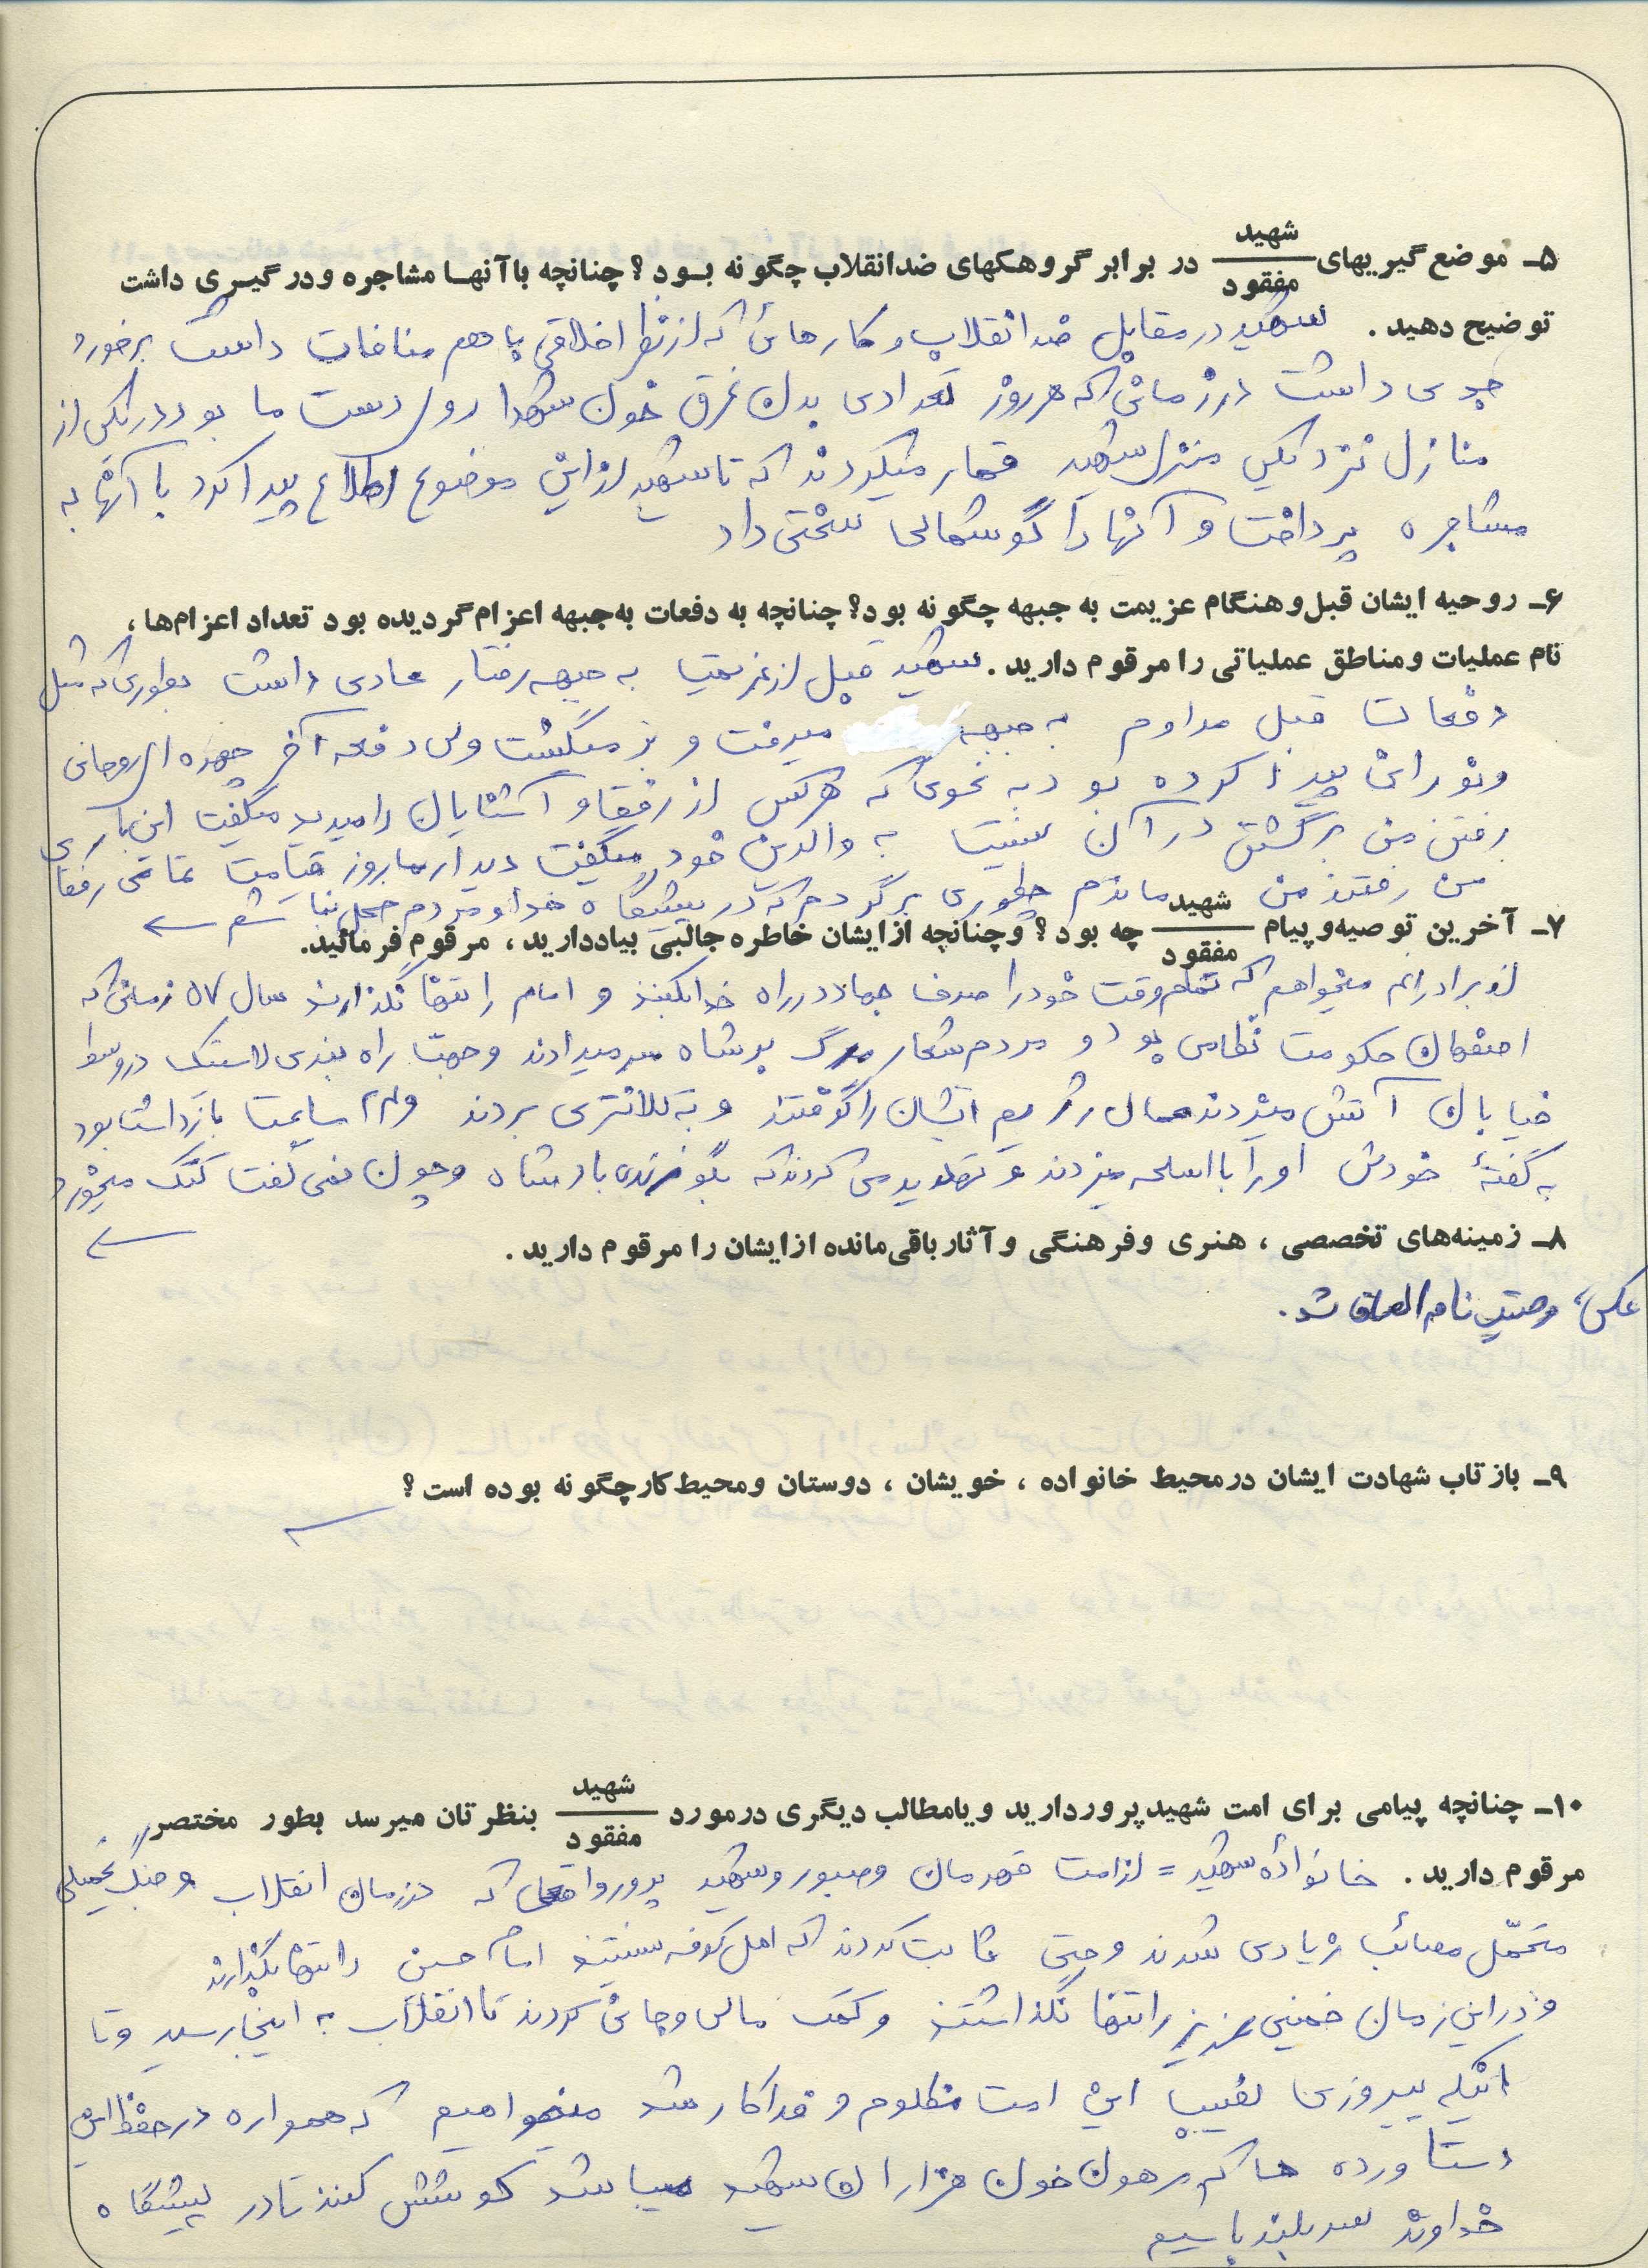 ۵ـ موضع گیریهای شهید/مفقود در برابر گروهکهای ضدانقلاب چگونه بود؟ چنانچه باآنها مشاجره ودرگیری داشت
توضیح دهید. شهید در مقابل ضد انقلاب و کارهائی که از نظر اخلاقی با هم منافات داشت برخورد
جدی داشت در زمانی که هر روز تعدادی بدن غرق خون شهدا روی دست ما بود در یکی از
منازل نزدیکی منزل شهید قمار میکردند که تا شهید از این موضوع اطلاع پیدا کرد با آنها به
مشاجره پرداخت و آنها را گوشمالی سختی داد
۶ـ روحیه ایشان قبل وهنگام عزیمت به جبهه چگونه بود؟ چنانچه به دفعات به جبهه اعزام گردیده بود تعداد اعزام‌ها،
نام عملیات ومناطق عملیاتی را مرقوم دارید. شهید قبل از عزیمت به جبهه رفتار عادی داشت بطوری که مثل
دفعات قبل مداوم به جبهه میرفت و بر میگشت ولی دفعه آخر چهره ای روحانی
ونورانی پیدا کرده بود به نحوی که هر کس از رفقا و آشنایان را میدید میگفت این باری
رفتن من برگشتن در آن نیست به والدین خود میگفت دیدار ما روز قیامت تمامی رفقای
من رفتند من ماندم چطوری برگردم که در پیشگاه خدا و مردم خجل نباشم ←
۷ـ آخرین توصیه وپیام شهید/مفقود چه بود؟ وچنانچه ازایشان خاطره جالبی بیاددارید، مرقوم فرمائید.
از برادرانم میخواهم که تمام وقت خود را صرف جهاد در راه خدا بکنند و امام را تنها نگذارند سال ۵۷ زمانی که
اصفهان حکومت نظامی بود و مردم شعار مرگ بر شاه سر میدادند و جهت راه بندی لاستیک در وسط
خیابان آتش میزدند عمال رژیم ایشان را گرفتند و به کلانتری بردند و ۲۴ ساعت بازداشت بود
به گفتهٔ خودش او را با اسلحه میزدند و تهدید می کردند که بگو زنده باد شاه و چون نمی گفت کتک میخورد
←
۸ـ زمینه‌های تخصصی، هنری وفرهنگی وآثار باقی‌مانده ازایشان را مرقوم دارید.
عکس، وصیت نامه الصاق شد.
۹ـ بازتاب شهادت ایشان درمحیط خانواده، خویشان، دوستان ومحیط کارچگونه بوده است؟
۱۰ـ چنانچه پیامی برای امت شهیدپرور دارید ویامطالب دیگری درمورد شهید/مفقود بنظرتان میرسد بطور مختصر
مرقوم دارید. خانوادهٔ شهید = از امت قهرمان و صبور و شهید پرور واقعی که در زمان انقلاب و جنگ تحمیلی
متحمّل مصائب زیادی شدند و حتی ثابت کردند که اهل کوفه نیستند امام حسین را تنها بگذارند
و در این زمان خمینی عزیز را تنها نگذاشتند و کمک مالی و جانی کردند تا انقلاب به اینجا رسید و تا
اینکه پیروزی نصیب این امت مظلوم و فداکار شد میخواهیم که همواره در حفظ این
دستاورده ها که مرهون خون هزاران شهید میباشد کوشش کنند تا در پیشگاه
خداوند سر بلند باشیم